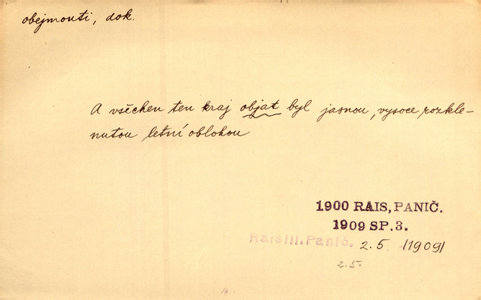 obejmouti, dok.
A všechen ten kraj objat byl jasnou, vysoce rozkle-
nutou letní oblohou
1900 RAIS, PANIČ.
1909 SP. 3.
Rais III. Panič. 2.5. (1909)
2.5.